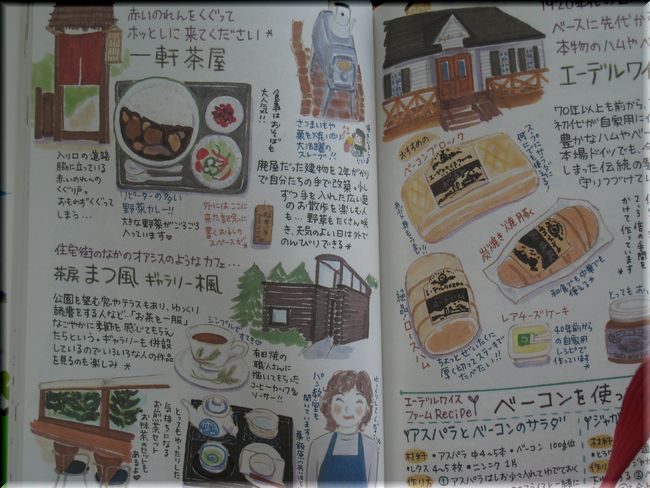 赤いのれんをくぐって
ホッとしに来てください
一軒茶屋
入り口の道路
脇に立っている
赤いのれんの
くぐり戸。
おもわずくぐって
しまう…
リピーターの多い
野菜カレー!!
大きな野菜がごろごろ
入っています
食事はおそばも
大人気!!
さつまいもや
栗を焼いたり
大活躍の
ストーブ!!
外にはここに
来た記念に
書くおふだの
スペースが
廃屋だった建物を2年がかり
で自分たちの手で改築。少し
ずつ手を入れた広い庭
のお散歩を楽しむ人
も…野草もたくさん咲
き、天気のよい日は外で
のんびりできる
住宅街のなかのオアシスのようなカフェ…
茶房 まつ風 ギャラリー楓
公園を望む窓やテラスもあり、ゆっくり
読書をする人など…「お茶を一服」
なごやかに季節を感じてもらえ
たらという。ギャラリーも併設
しているのでいろいろな人の作品
を見るのも楽しみ
シンプルで
すてき
有田焼の
職人さんに
描いてもらった
コーヒーカップ&
ソーサー!!
とってもゆったりした
気持ちになる
お煎茶セット
お抹茶のセットも
あるよ
パン教室も
開いています!!
1920年
ベースに先代か
本物のハムやベ
エーデルワイ
70年以上も前から、
初代が自家用に
豊かなハムやベー
本場ドイツでも、
しまった伝統の
守りつづけてい
おすすめの
ベーコンブロック
炭焼き焼豚
和風でも中華でも
使える
2、3倍の時間を
かけて作って
います
ロースハム
ちょっとぜいたくに
厚く切ってステーキで
たべたい!!
レアチーズケーキ
40年前から
の自家用
レシピで
作っています
とっても
エーデルワイス
ファーム Recipe!
ベーコンを使っ
アスパラとベーコンのサラダ
材料 ・アスパラ 中4~5本 ・ベーコン 100g位
・レタス 4~5枚 ・ニンニク 1片
作り方 ①アスパラはしお少々入れてゆでておく
ジャガ
材料
作り方